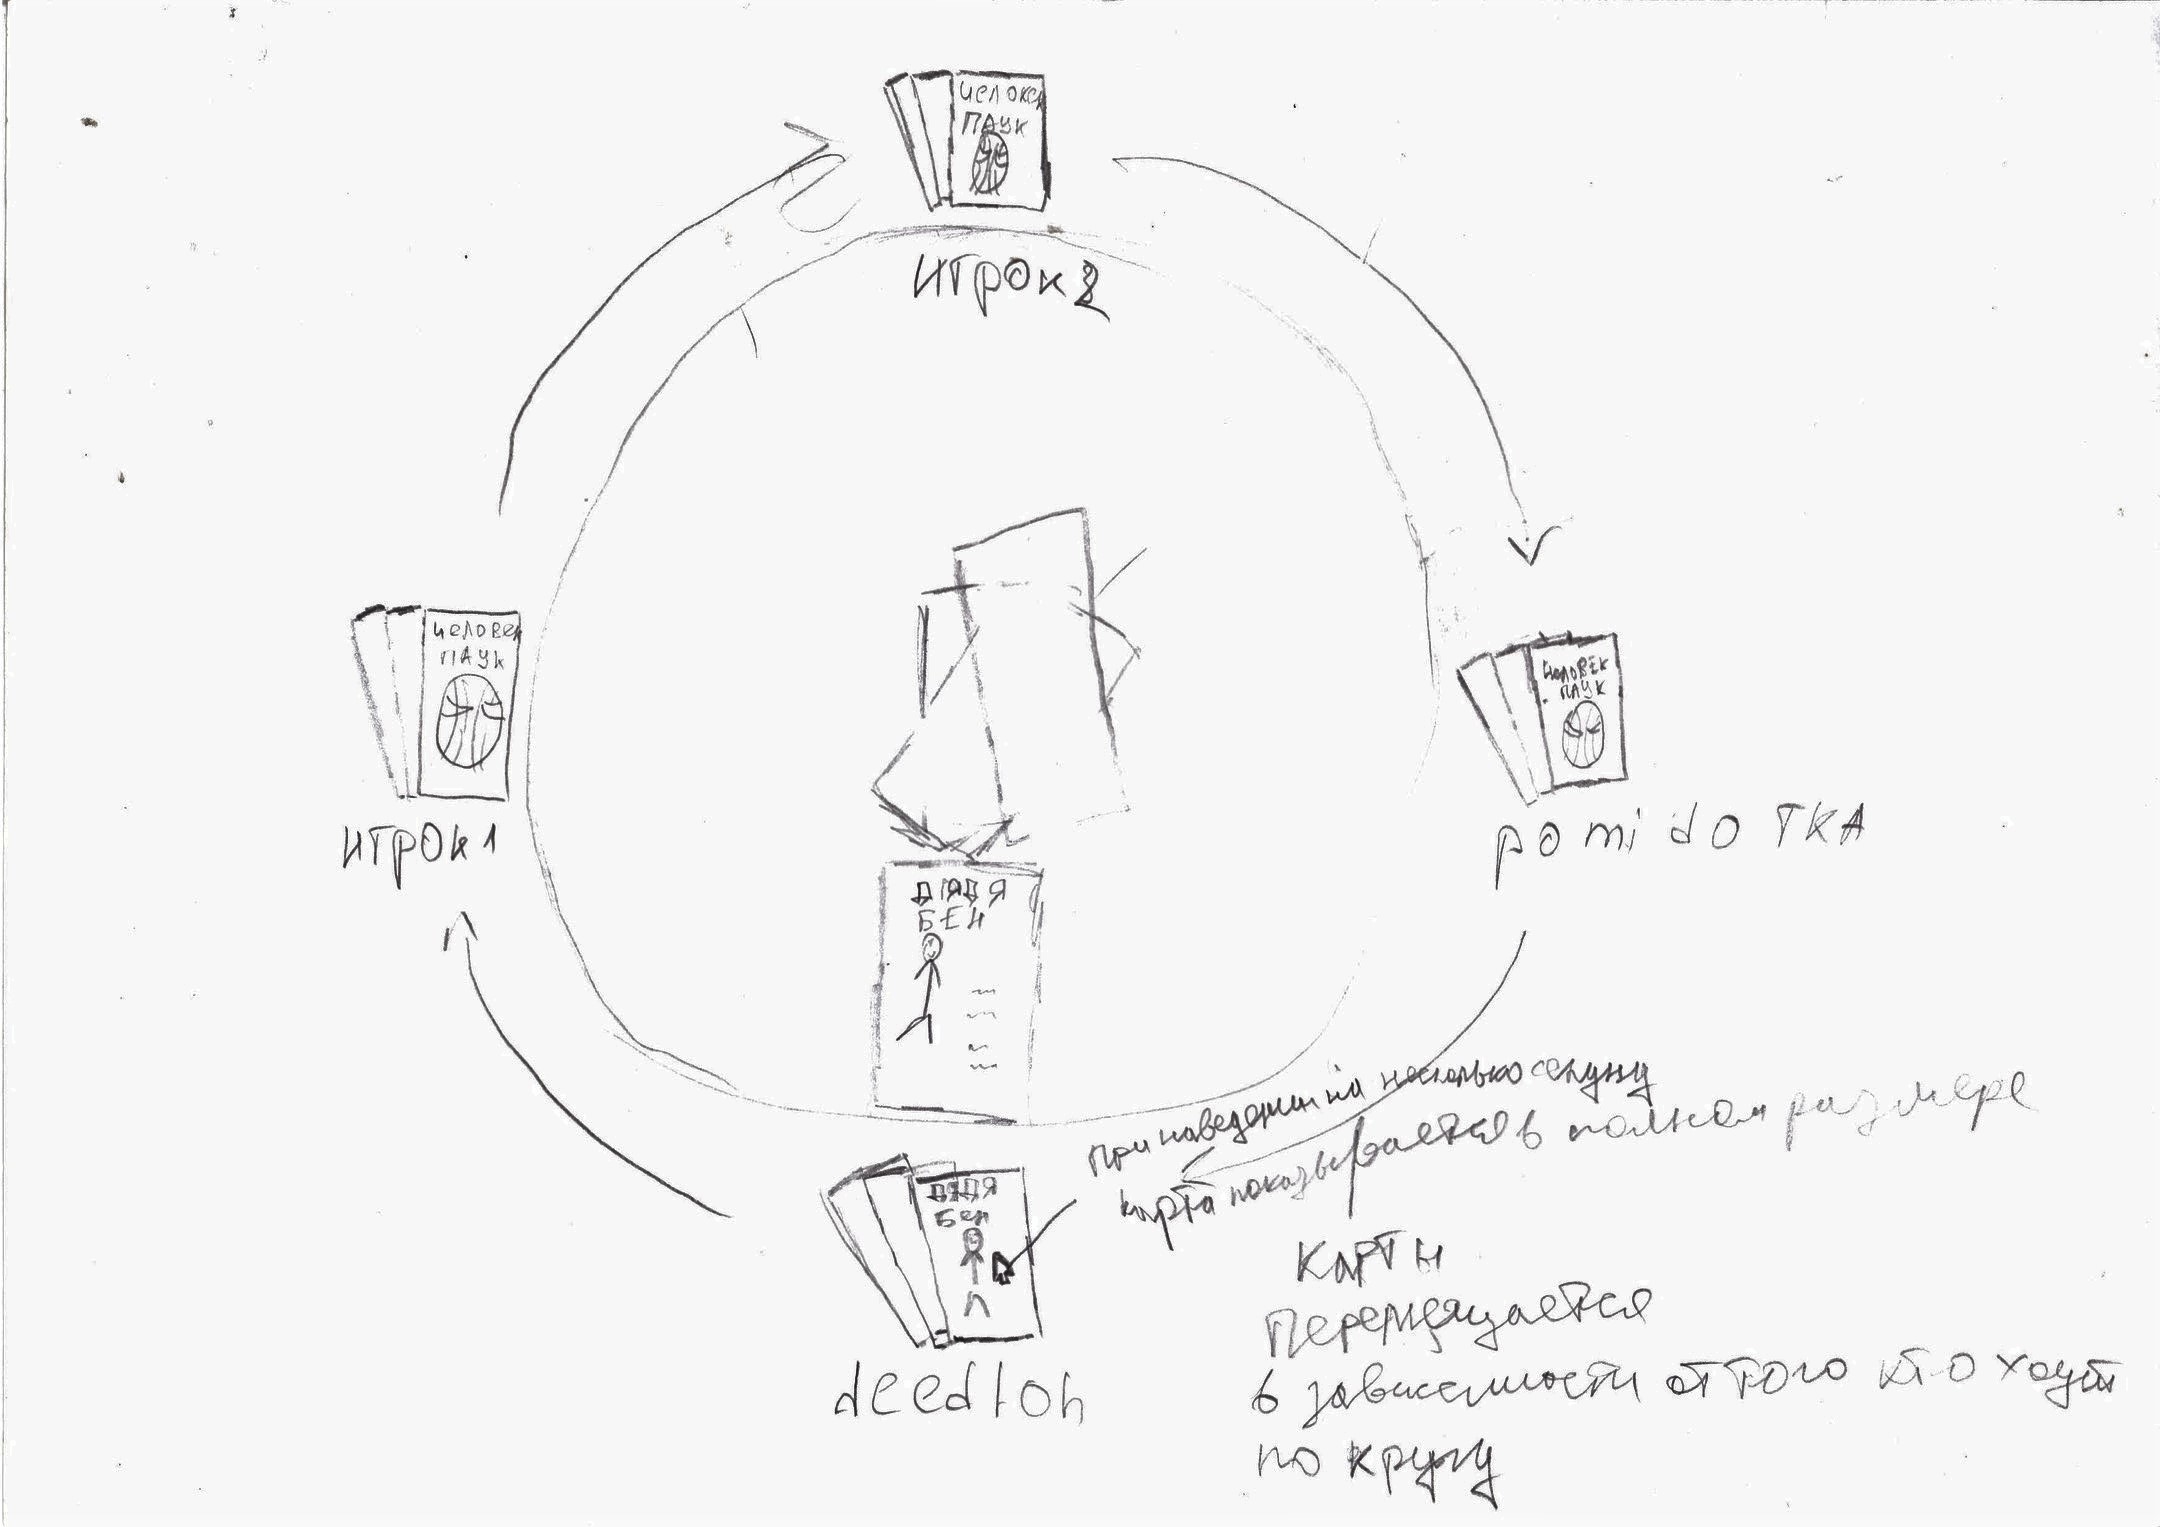 ЧЕЛОВЕК
ПАУК
ИГРОК 2
ЧЕЛОВЕК
ПАУК
ИГРОК 1
ЧЕЛОВЕК
ПАУК
pomidoTKA
ДЯДЯ
БЕН
При наведении на несколько секунд
карта показывается в полном размере
ДЯДЯ
Бен
deedloh
КАРТЫ
Перемещается
в зависимости от того кто ходит
по кругу